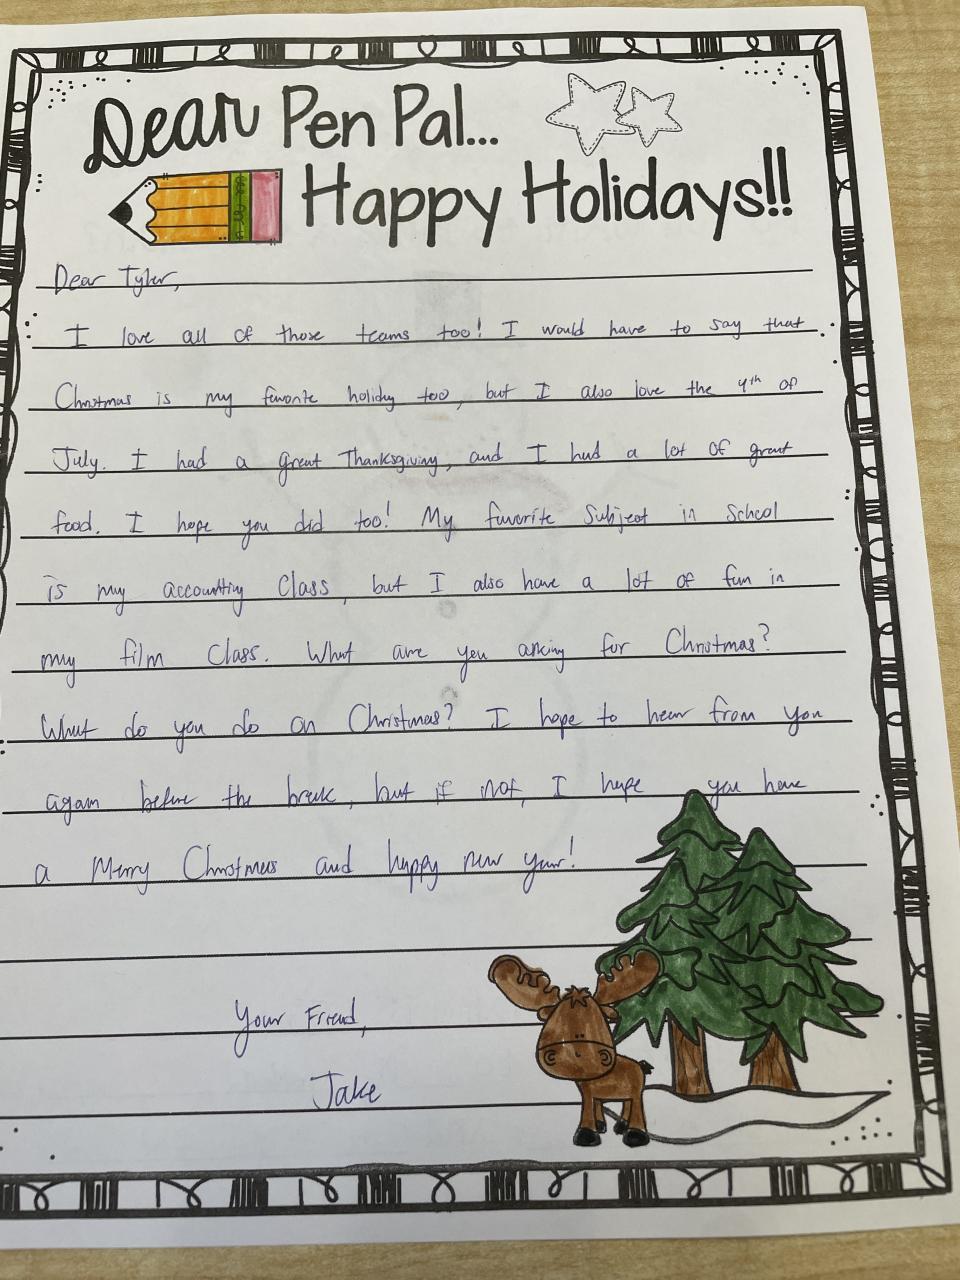 Dear Pen Pal...
Happy Holidays!!
Dear Tyler,
I love all of those teams too! I would have to say that
Christmas is my favorite holiday too, but I also love the 4th of
July. I had a great Thanksgiving, and I had a lot of great
food. I hope you did too! My favorite Subject in School
is my accounting Class, but I also have a lot of fun in
my film Class. What are you asking for Christmas?
What do you do on Christmas? I hope to hear from you
again before the break, but if not, I hope you have
a Merry Christmas and happy new year!
Your Friend,
Jake